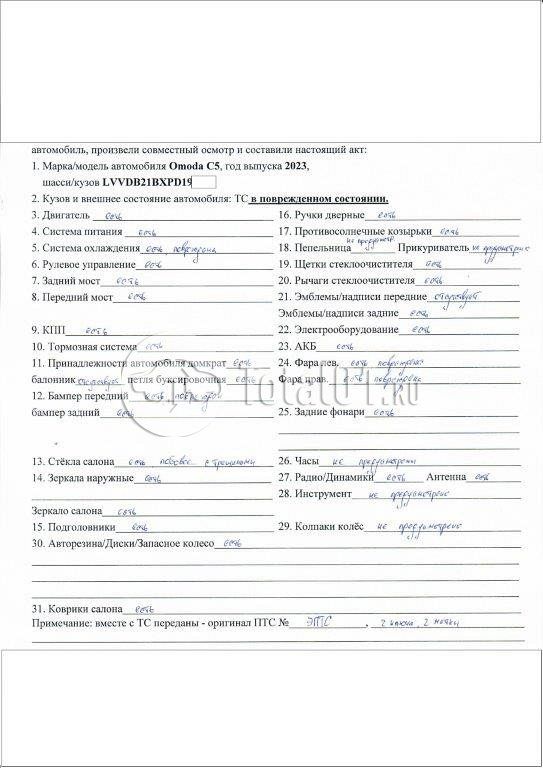 автомобиль, произвели совместный осмотр и составили настоящий акт:
1. Марка/модель автомобиля Omoda C5, год выпуска 2023,
шасси/кузов LVVDB21BXPD19
2. Кузов и внешнее состояние автомобиля: ТС в поврежденном состоянии.
3. Двигатель есть
4. Система питания есть
5. Система охлаждения есть, повреждена
6. Рулевое управление есть
7. Задний мост есть
8. Передний мост есть
9. КПП есть
10. Тормозная система есть
11. Принадлежности автомобиля домкрат есть
балонник отсутствует петля буксировочная есть
12. Бампер передний есть поврежден
бампер задний есть
13. Стёкла салона есть лобовое с трещинами
14. Зеркала наружные есть
Зеркало салона есть
15. Подголовники есть
16. Ручки дверные есть
17. Противосолнечные козырьки есть
18. Пепельница не предусмотр Прикуриватель не предусмотрено
19. Щетки стеклоочистителя есть
20. Рычаги стеклоочистителя есть
21. Эмблемы/надписи передние отсутствует
Эмблемы/надписи задние есть
22. Электрооборудование есть
23. АКБ есть
24. Фара лев. есть повреждена
Фара прав. есть повреждена
25. Задние фонари есть
26. Часы не предусмотрены
27. Радио/Динамики есть Антенна есть
28. Инструмент не предусмотрено
29. Колпаки колёс не предусмотрено
30. Авторезина/Диски/Запасное колесо есть
31. Коврики салона есть
Примечание: вместе с ТС переданы - оригинал ПТС № ЭПТС, 2 ключа, 2 метки
Total01.ru